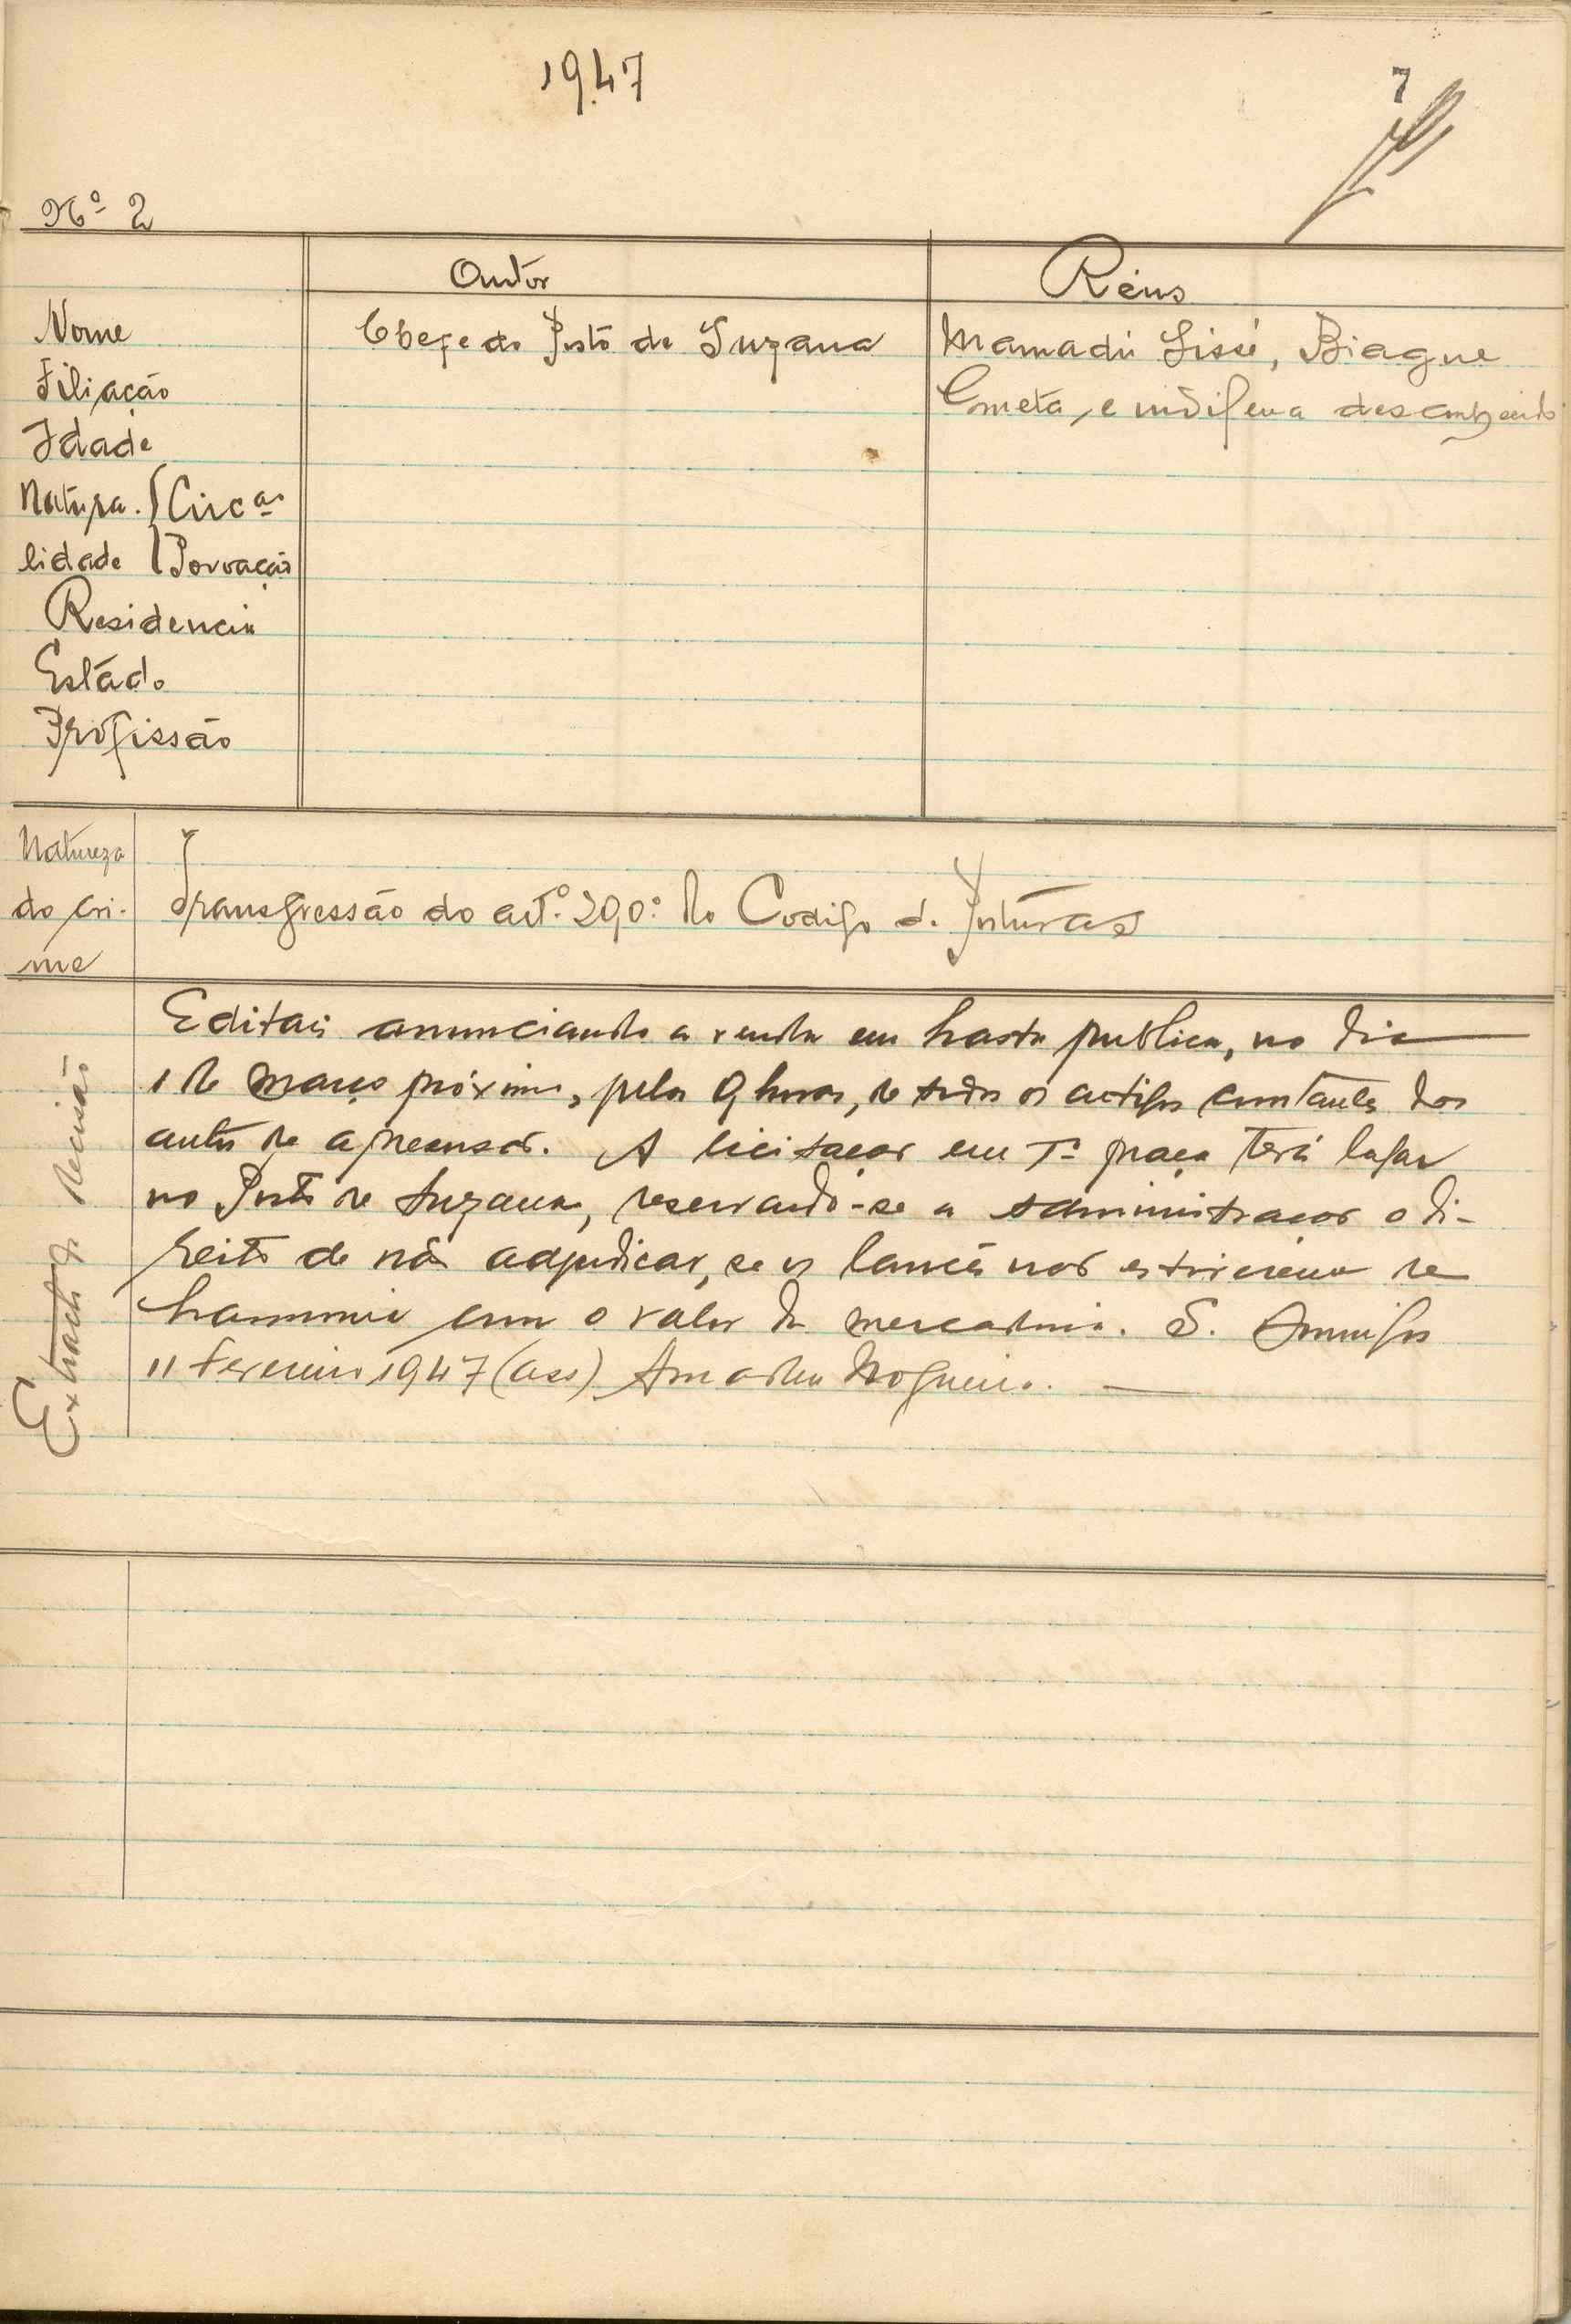 1947
7
Nº 2
Autor
Réus
Nome
Chefe do Posto de Suzana
Mamadú Sissé, Biague
Filiação
Cometa, e indigena desconhecido
Idade
Natura. Circªˢ
lidade Povoação
Residencia
Estádo
Profissão
Natureza
do cri-
me
Transgressão do artº. 290º. do Codigo de Posturas
Extracto da decisão
Editais anunciando a venda em hasta publica, no dia
1 de março próximo, pelas 9 horas, de todos os artigos constantes dos
autos de apreensão. A licitação em 1ª praça terá lugar
no Posto de Suzana, reservando-se a administração o di-
reito de não adjudicar, se os lances não estiverem de
harmonia com o valor da mercadoria. S. Domingos
11 Fevereiro 1947 (ass) Amadeu Nogueira.